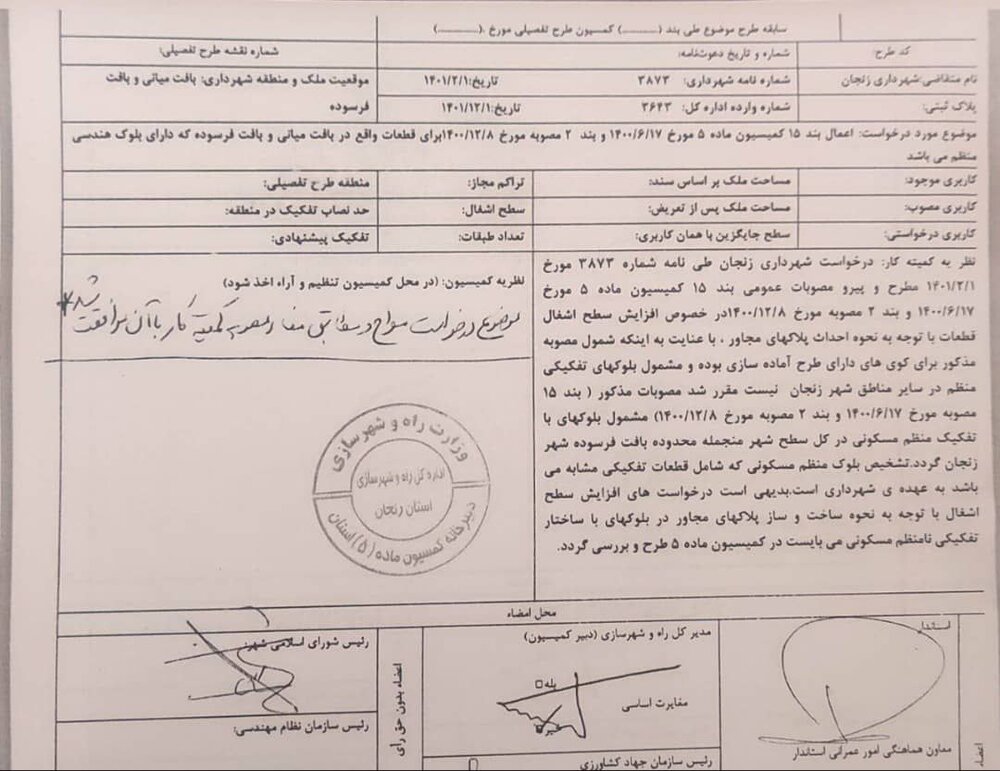 سابقه طرح موضوع طی بند (............) کمسیون طرح تفصیلی مورخ .(............)
کد طرح:
شماره و تاریخ دعوتنامه:
شماره نقشه طرح تفصیلی:
نام متقاضی:شهرداری زنجان
شماره نامه شهرداری: ۳۸۷۳
تاریخ:۱۴۰۱/۲/۱
موقعیت ملک و منطقه شهرداری: بافت میانی و بافت
فرسوده
پلاک ثبتی:
شماره وارده اداره کل: ۳۶۴۳
تاریخ:۱۴۰۱/۱۲/۱
موضوع مورد درخواست: اعمال بند ۱۵ کمیسیون ماده ۵ مورخ ۱۴۰۰/۶/۱۷ و بند ۲ مصوبه مورخ ۱۴۰۰/۱۲/۸برای قطعات واقع در بافت میانی و بافت فرسوده که دارای بلوک هندسی
منظم می باشد
کاربری موجود:
مساحت ملک بر اساس سند:
تراکم مجاز:
منطقه طرح تفصیلی:
کاربری مصوب:
مساحت ملک پس از تعریض:
سطح اشغال:
حد نصاب تفکیک در منطقه:
کاربری درخواستی:
سطح جایگزین با همان کاربری:
تعداد طبقات:
تفکیک پیشنهادی:
نظر به کمیته کار: درخواست شهرداری زنجان طی نامه شماره ۳۸۷۳ مورخ
۱۴۰۱/۲/۱ مطرح و پیرو مصوبات عمومی بند ۱۵ کمیسیون ماده ۵ مورخ
۱۴۰۰/۶/۱۷ و بند ۲ مصوبه مورخ ۱۴۰۰/۱۲/۸در خصوص افزایش سطح اشغال
قطعات با توجه به نحوه احداث پلاکهای مجاور ، با عنایت به اینکه شمول مصوبه
مذکور برای کوی های دارای طرح آماده سازی بوده و مشمول بلوکهای تفکیکی
منظم در سایر مناطق شهر زنجان نیست مقرر شد مصوبات مذکور ( بند ۱۵
مصوبه مورخ ۱۴۰۰/۶/۱۷ و بند ۲ مصوبه مورخ ۱۴۰۰/۱۲/۸) مشمول بلوکهای با
تفکیک منظم مسکونی در کل سطح شهر منجمله محدوده بافت فرسوده شهر
زنجان گردد.تشخیص بلوک منظم مسکونی که شامل قطعات تفکیکی مشابه می
باشد به عهده ی شهرداری است.بدیهی است درخواست های افزایش سطح
اشغال با توجه به نحوه ساخت و ساز پلاکهای مجاور در بلوکهای با ساختار
تفکیکی نامنظم مسکونی می بایست در کمیسیون ماده ۵ طرح و بررسی گردد.
نظریه کمیسیون: (در محل کمیسیون تنظیم و آراء اخذ شود)
موضوع درخواست مطرح و مطابق مفاد مصوبه کمیته کار با آن موافقت شد
وزارت راه و شهرسازی
اداره کل راه و شهرسازی
استان زنجان
دبیرخانه کمسیون ماده (۵) استان
محل امضاء
استاندار
معاون هماهنگی امور عمرانی استاندار
اعضاء
مدیر کل راه و شهرسازی (دبیر کمیسیون)
بله
مغایرت اساسی
خیر
رئیس سازمان جهاد کشاورزی
اعضاء بدون حق رأی
رئیس شورای اسلامی شهر:
رئیس سازمان نظام مهندسی: